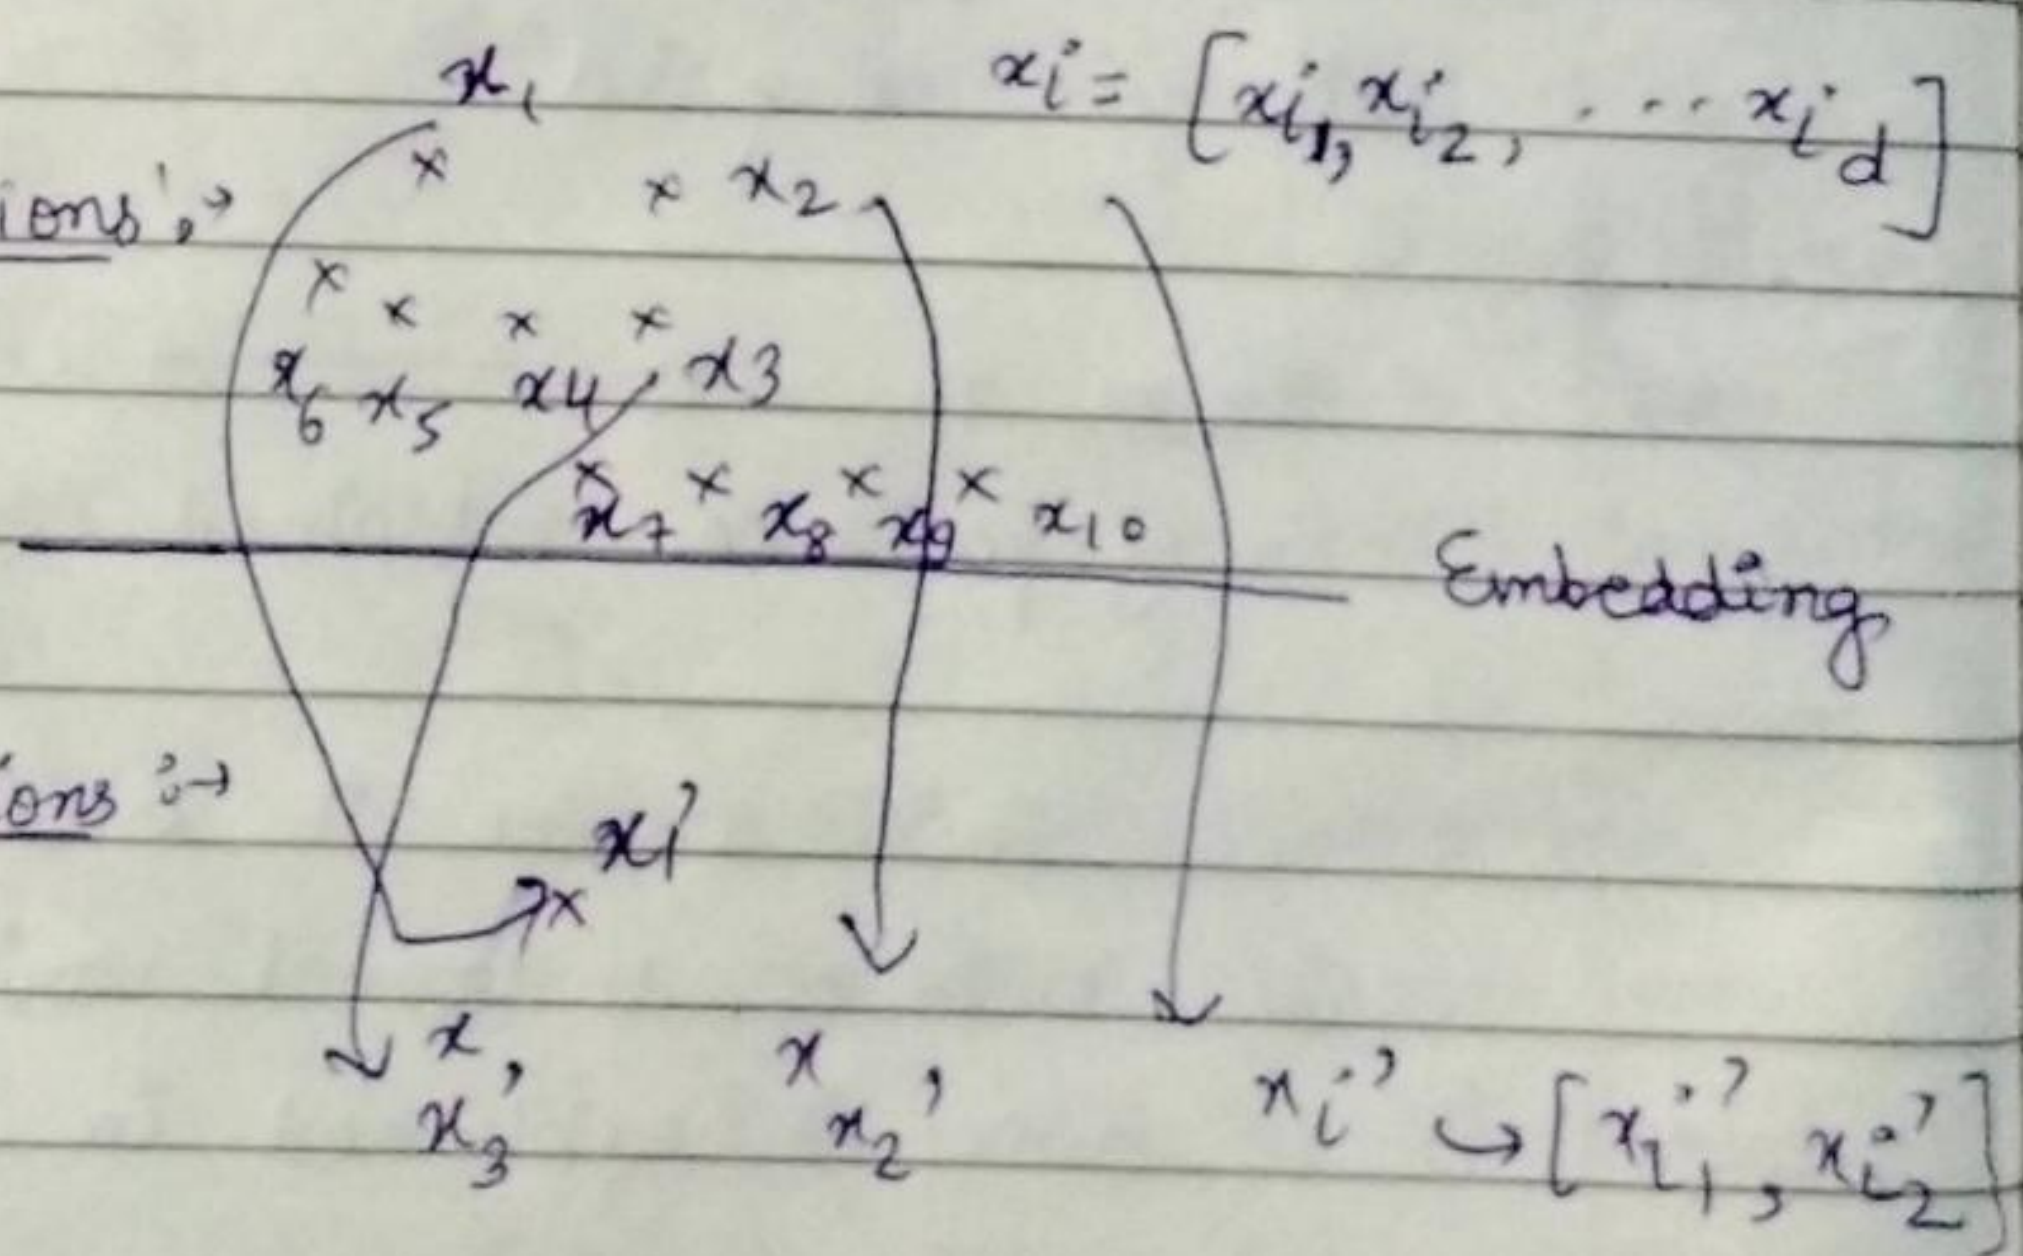 x₁ xi = [xi₁, xi₂, ..... xi_d]
ions :→ × × x₂
× × × ×
x₆ x₅ x₄ x₃
× × × ×
x₇ x₈ x₉ x₁₀
Embedding
ons :→
x₁'
×
x, x,
x₃' x₂' xi' ↪ [xi₁', xi₂']